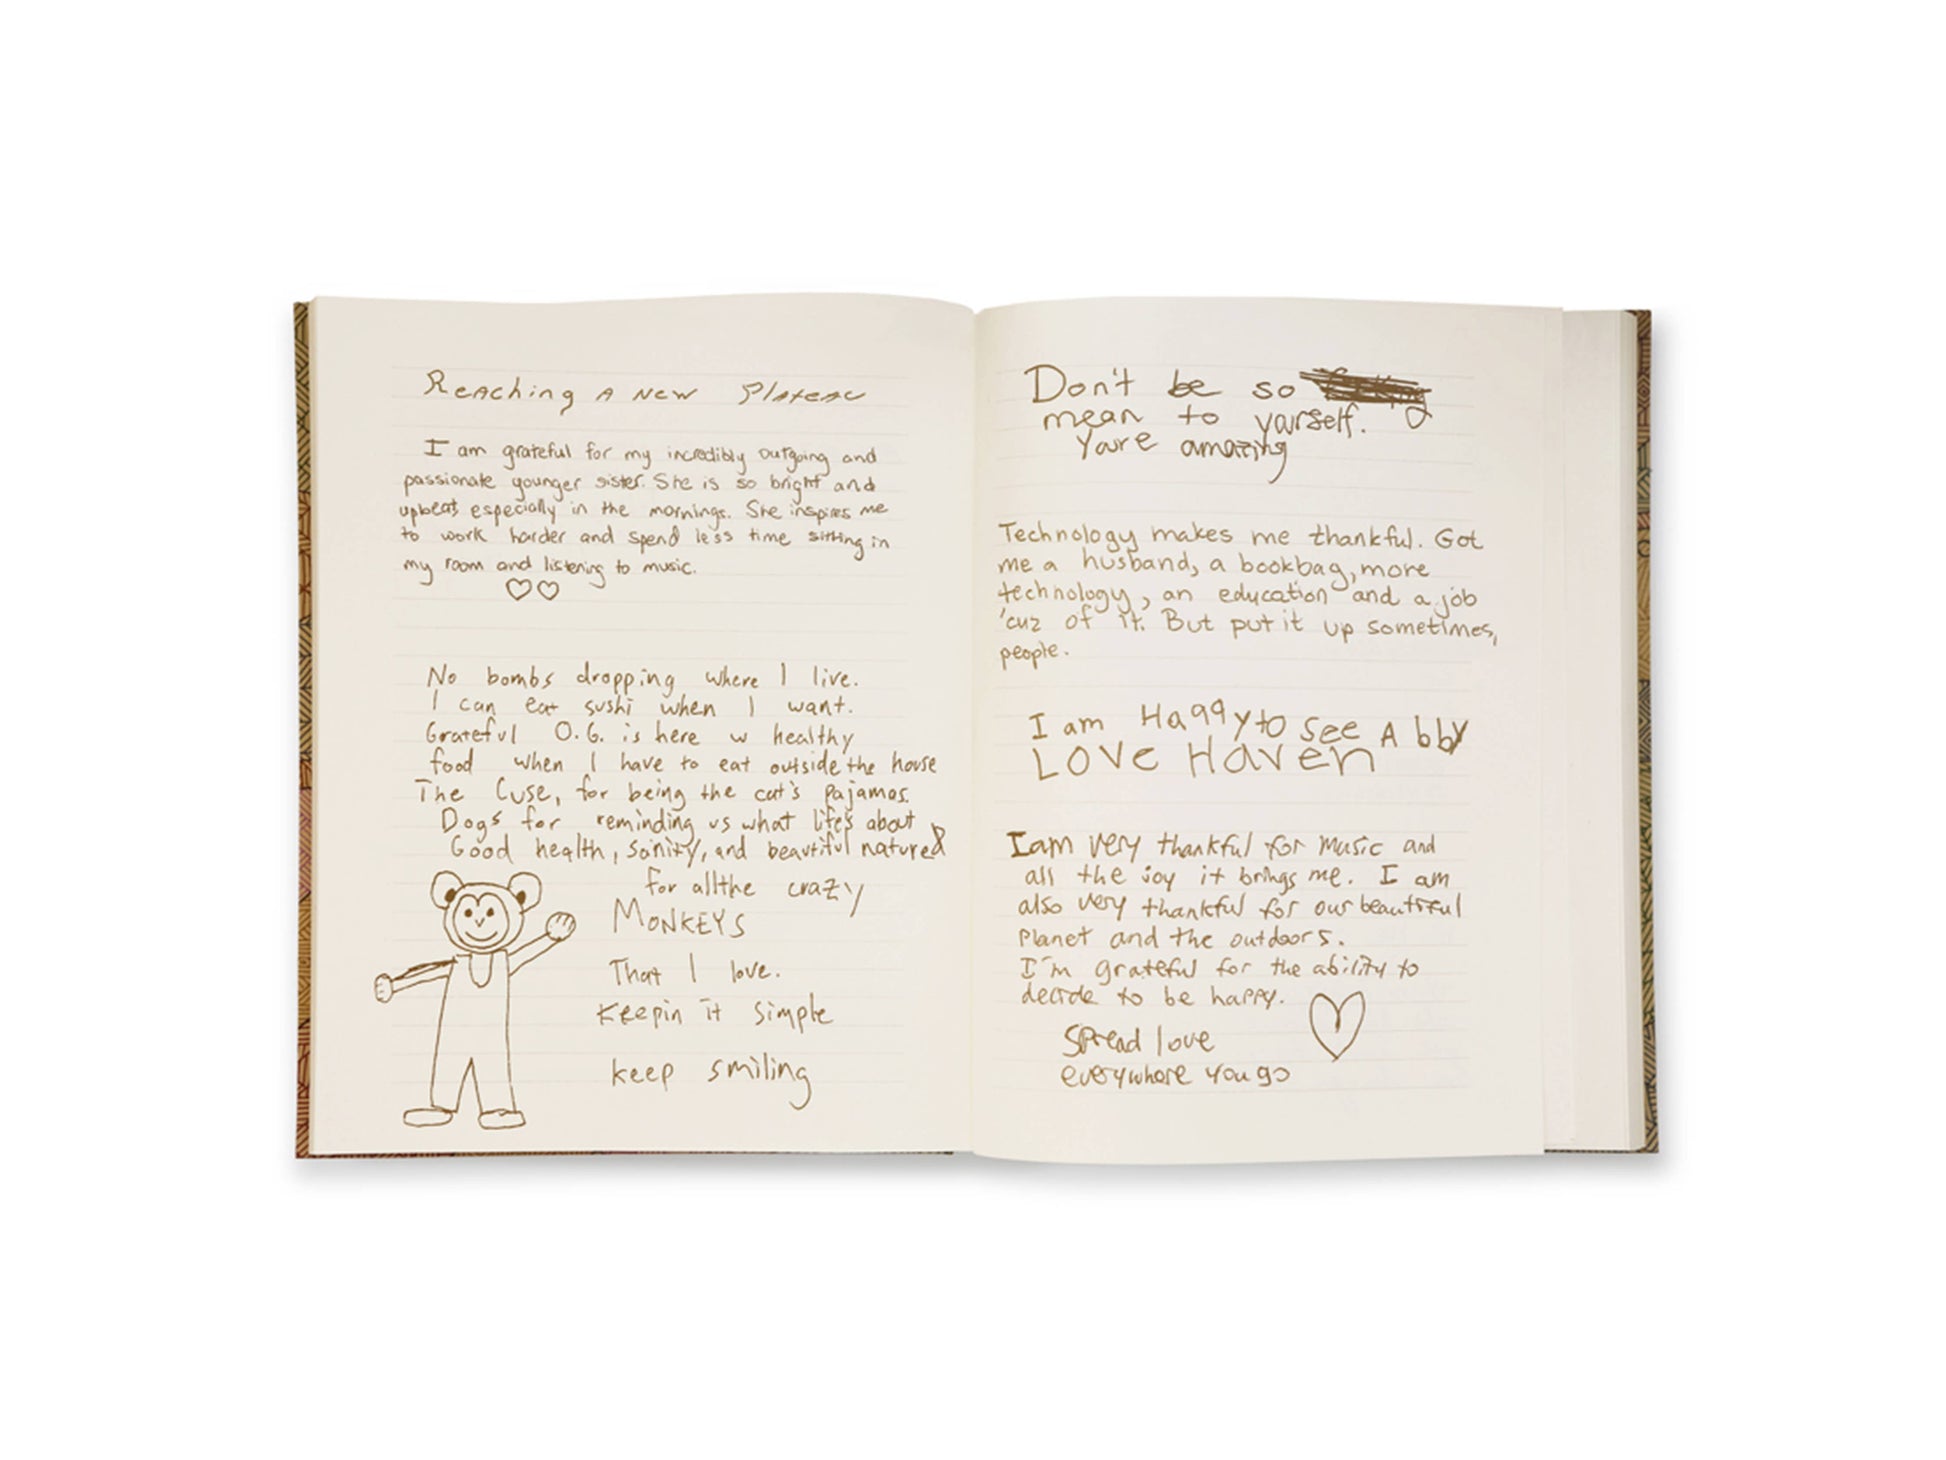 Reaching A New Plateau
I am grateful for my incredibly outgoing and
passionate younger sister. She is so bright and
upbeat especially in the mornings. She inspires me
to work harder and spend less time sitting in
my room and listening to music.
No bombs dropping where I live.
I can eat sushi when I want.
Grateful O.G. is here w healthy
food when I have to eat outside the house
The Cuse, for being the cat's pajamas.
Dogs for reminding us what life's about
Good health, sanity, and beautiful nature &
for all the crazy
MONKEYS
That I love.
Keepin it simple
keep smiling
Don't be so
mean to yourself.
You're amazing
Technology makes me thankful. Got
me a husband, a bookbag, more
technology, an education and a job
'cuz of it. But put it up sometimes,
people.
I am Haqqy to see Abby
LOVE Haven
I am very thankful for music and
all the joy it brings me. I am
also very thankful for our beautiful
Planet and the outdoors.
I'm grateful for the ability to
decide to be happy.
Spread love
everywhere you go